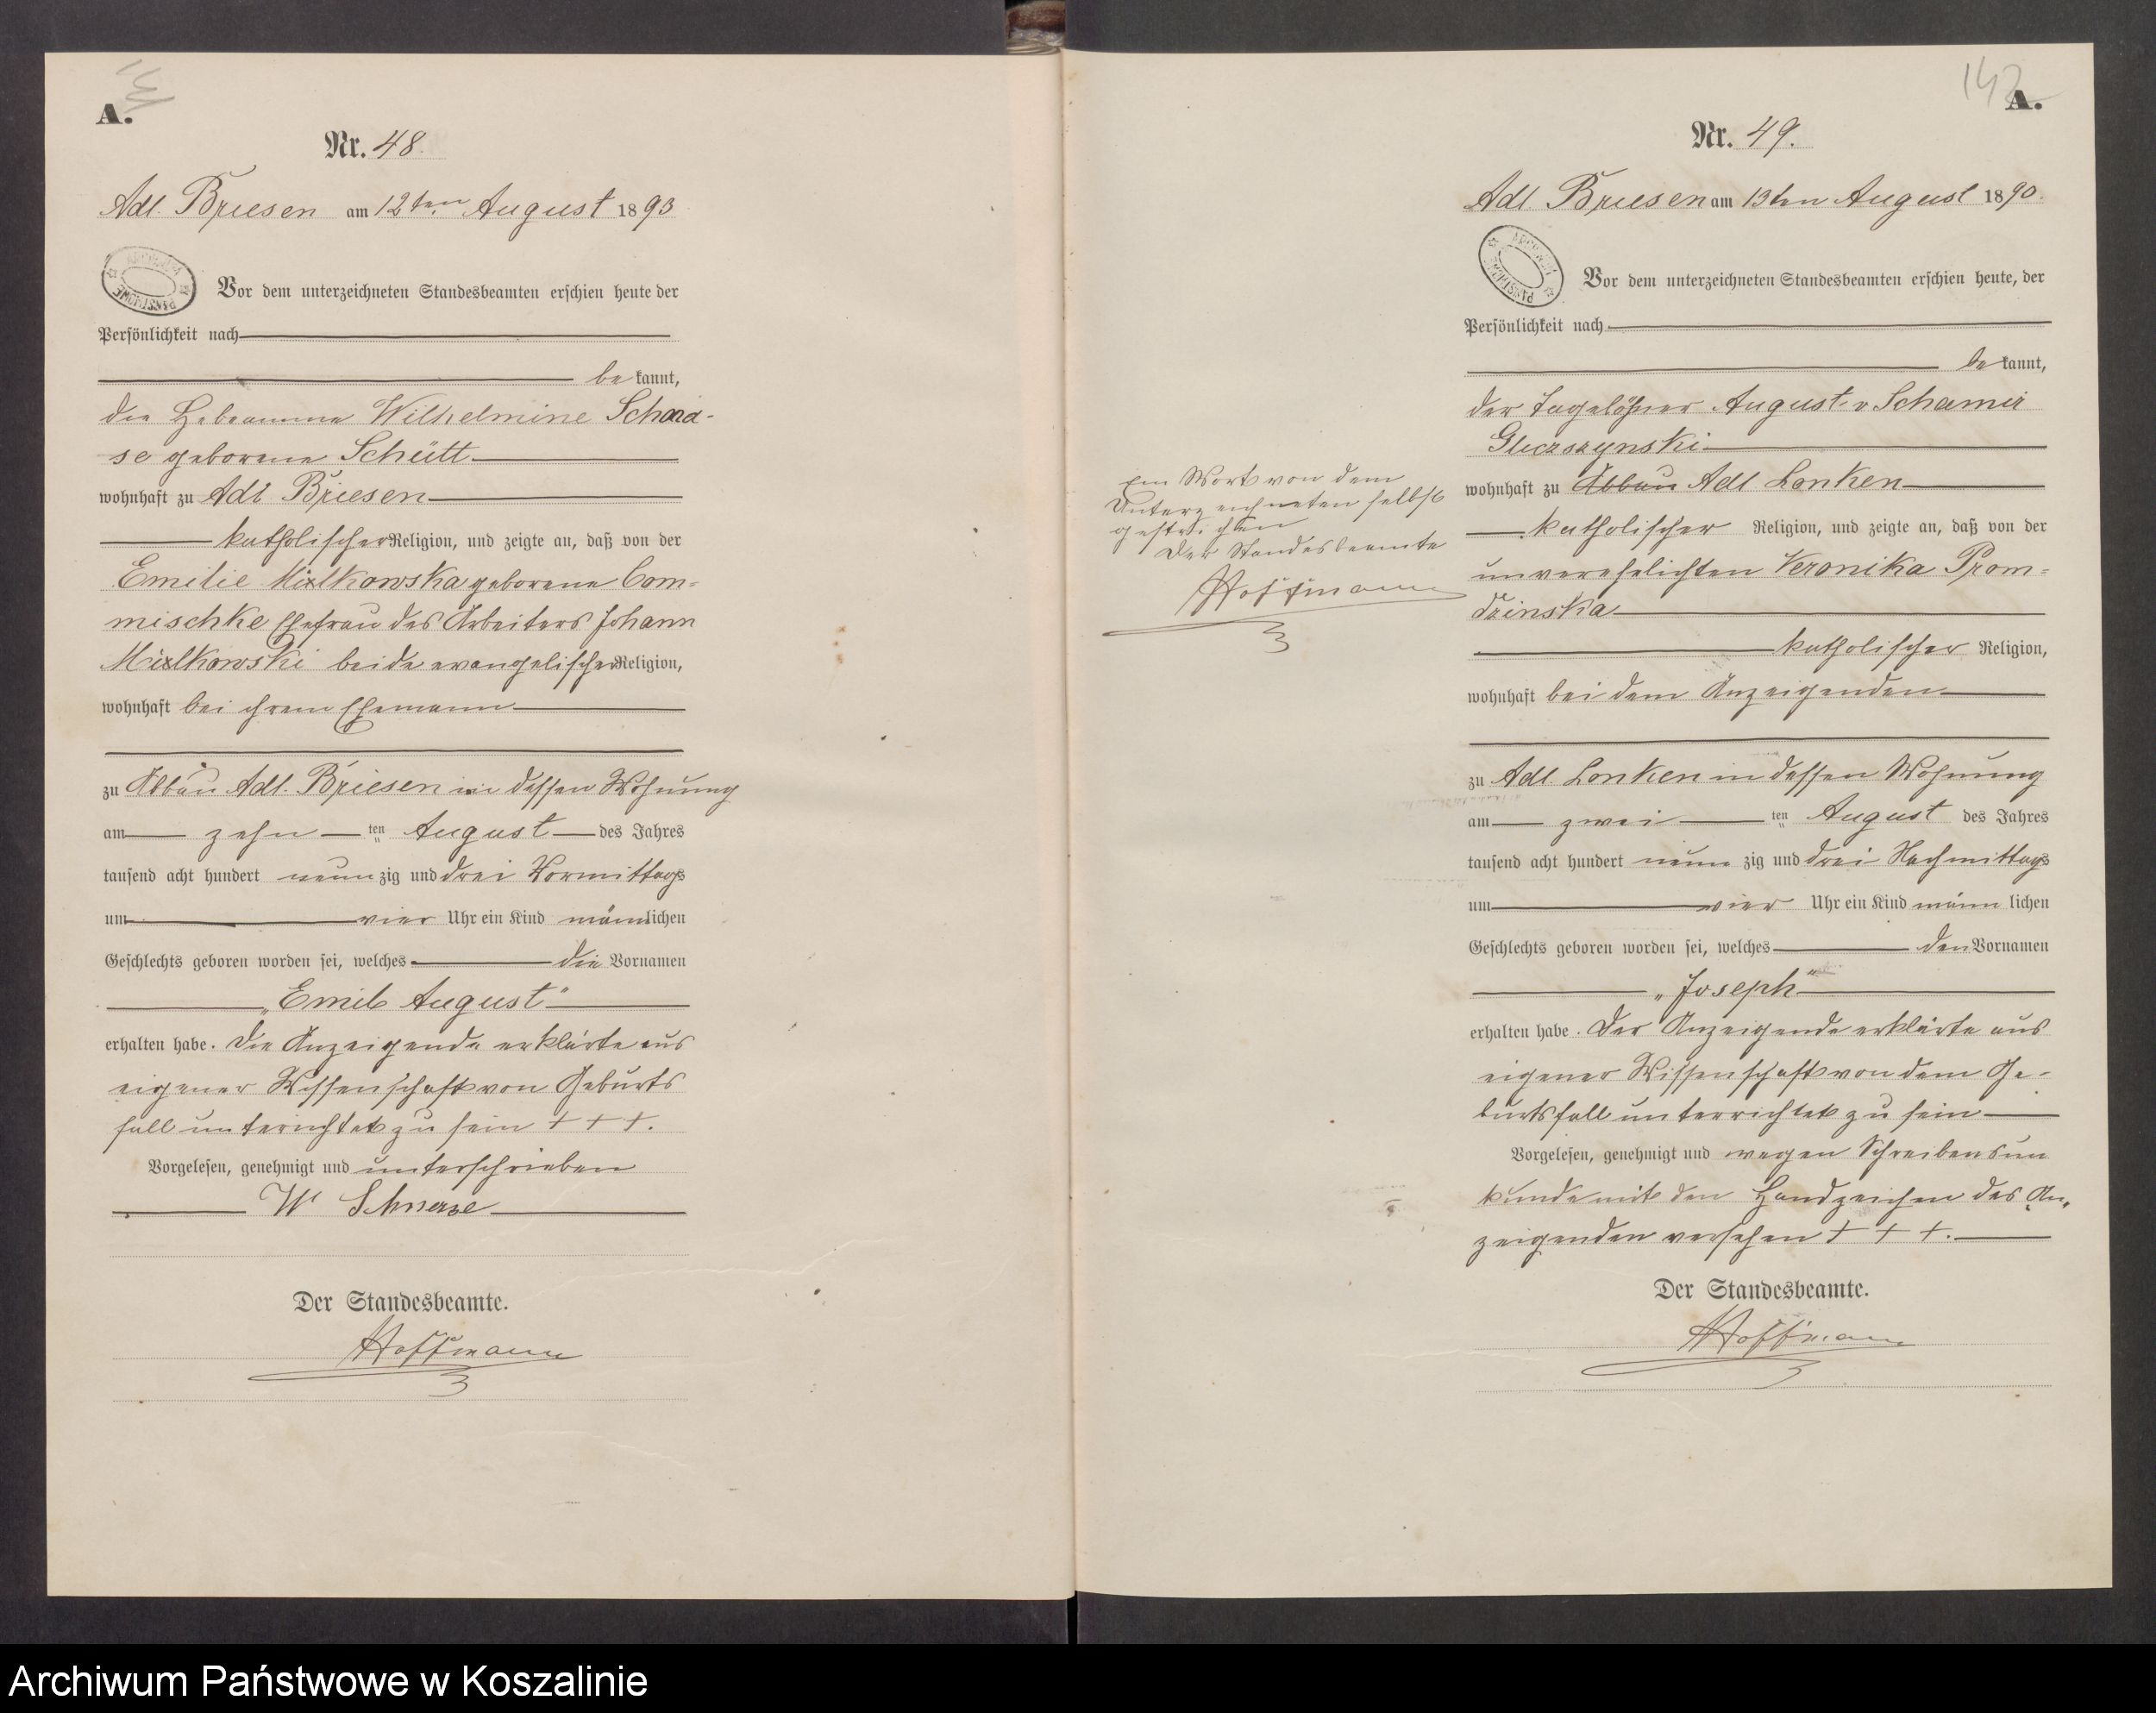 A.
Nr. 48.
Adl. Briesen am 12ten August 1893
Vor dem unterzeichneten Standesbeamten erschien heute der
Persönlichkeit nach
be kannt,
die Hebeamme Wilhelmine
se geborene Schütt
wohnhaft zu Adl Briesen
katholischer Religion, und zeigte an, daß von der
Emilie geborene Com-
mischke Ehefrau des Arbeiters Johann
beide evangelischer Religion,
wohnhaft bei ihrem Ehemann
zu Abbau Adl. Briesen in dessen Wohnung
am zehn ten August des Jahres
tausend acht hundert neun zig und drei Vormittags
um vier Uhr ein Kind männlichen
Geschlechts geboren worden sei, welches die Vornamen
„Emil August"
erhalten habe. Die Anzeigende erklärte aus
eigener Wissenschaft von Geburts
fall unterichtet zu sein + + +.
Vorgelesen, genehmigt und unterschrieben
W
Der Standesbeamte.
Hoffmann
142
A.
Nr. 49.
Adl Briesen am 13ten August 1890.
ARCHIWA PAŃSTWOWE
Vor dem unterzeichneten Standesbeamten erschien heute, der
Persönlichkeit nach
be kannt,
der Tagelöhner August v
wohnhaft zu Abbau Adl Lonken
katholischer Religion, und zeigte an, daß von der
unverehelichten Veronika Prom-
dzinska
katholischer Religion,
wohnhaft bei dem Anzeigenden
zu Adl. Lonken in dessen Wohnung
am zwei ten August des Jahres
tausend acht hundert neun zig und drei Nachmittags
um vier Uhr ein Kind männ lichen
Geschlechts geboren worden sei, welches den Vornamen
„Joseph"
erhalten habe. Der Anzeigende erklärte aus
eigener Wissenschaft von dem Ge-
burtsfall unterrichtet zu sein
Vorgelesen, genehmigt und wegen Schreibensun
kunde mit den Handzeichen des An-
zeigenden versehen + + +.
Der Standesbeamte.
Hoffmann
Ein Wort von dem
Unterzeichneten selbst
gestrichen
Der Standesbeamte
Hoffmann
Archiwum Państwowe w Koszalinie